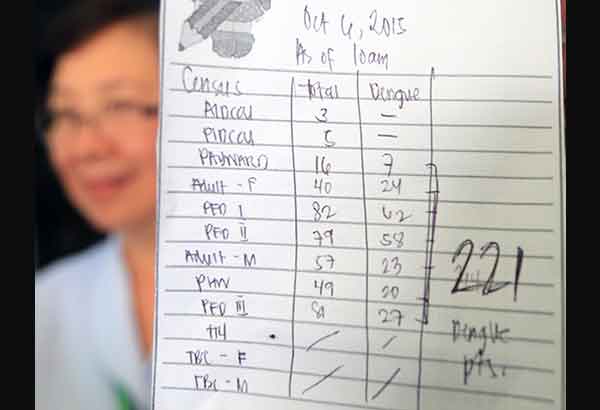 Oct 4, 2015
As of 10am
Census Total Dengue
AIDCCU 3 —
PIDCCU 5 —
PAYWARD 16 7
Adult - F 40 24
PED I 82 62
PED II 79 58
Adult - M 57 23
49 20
PED III 81 27
/ /
TBC - F
TBC - M / /
221
Dengue
pts.